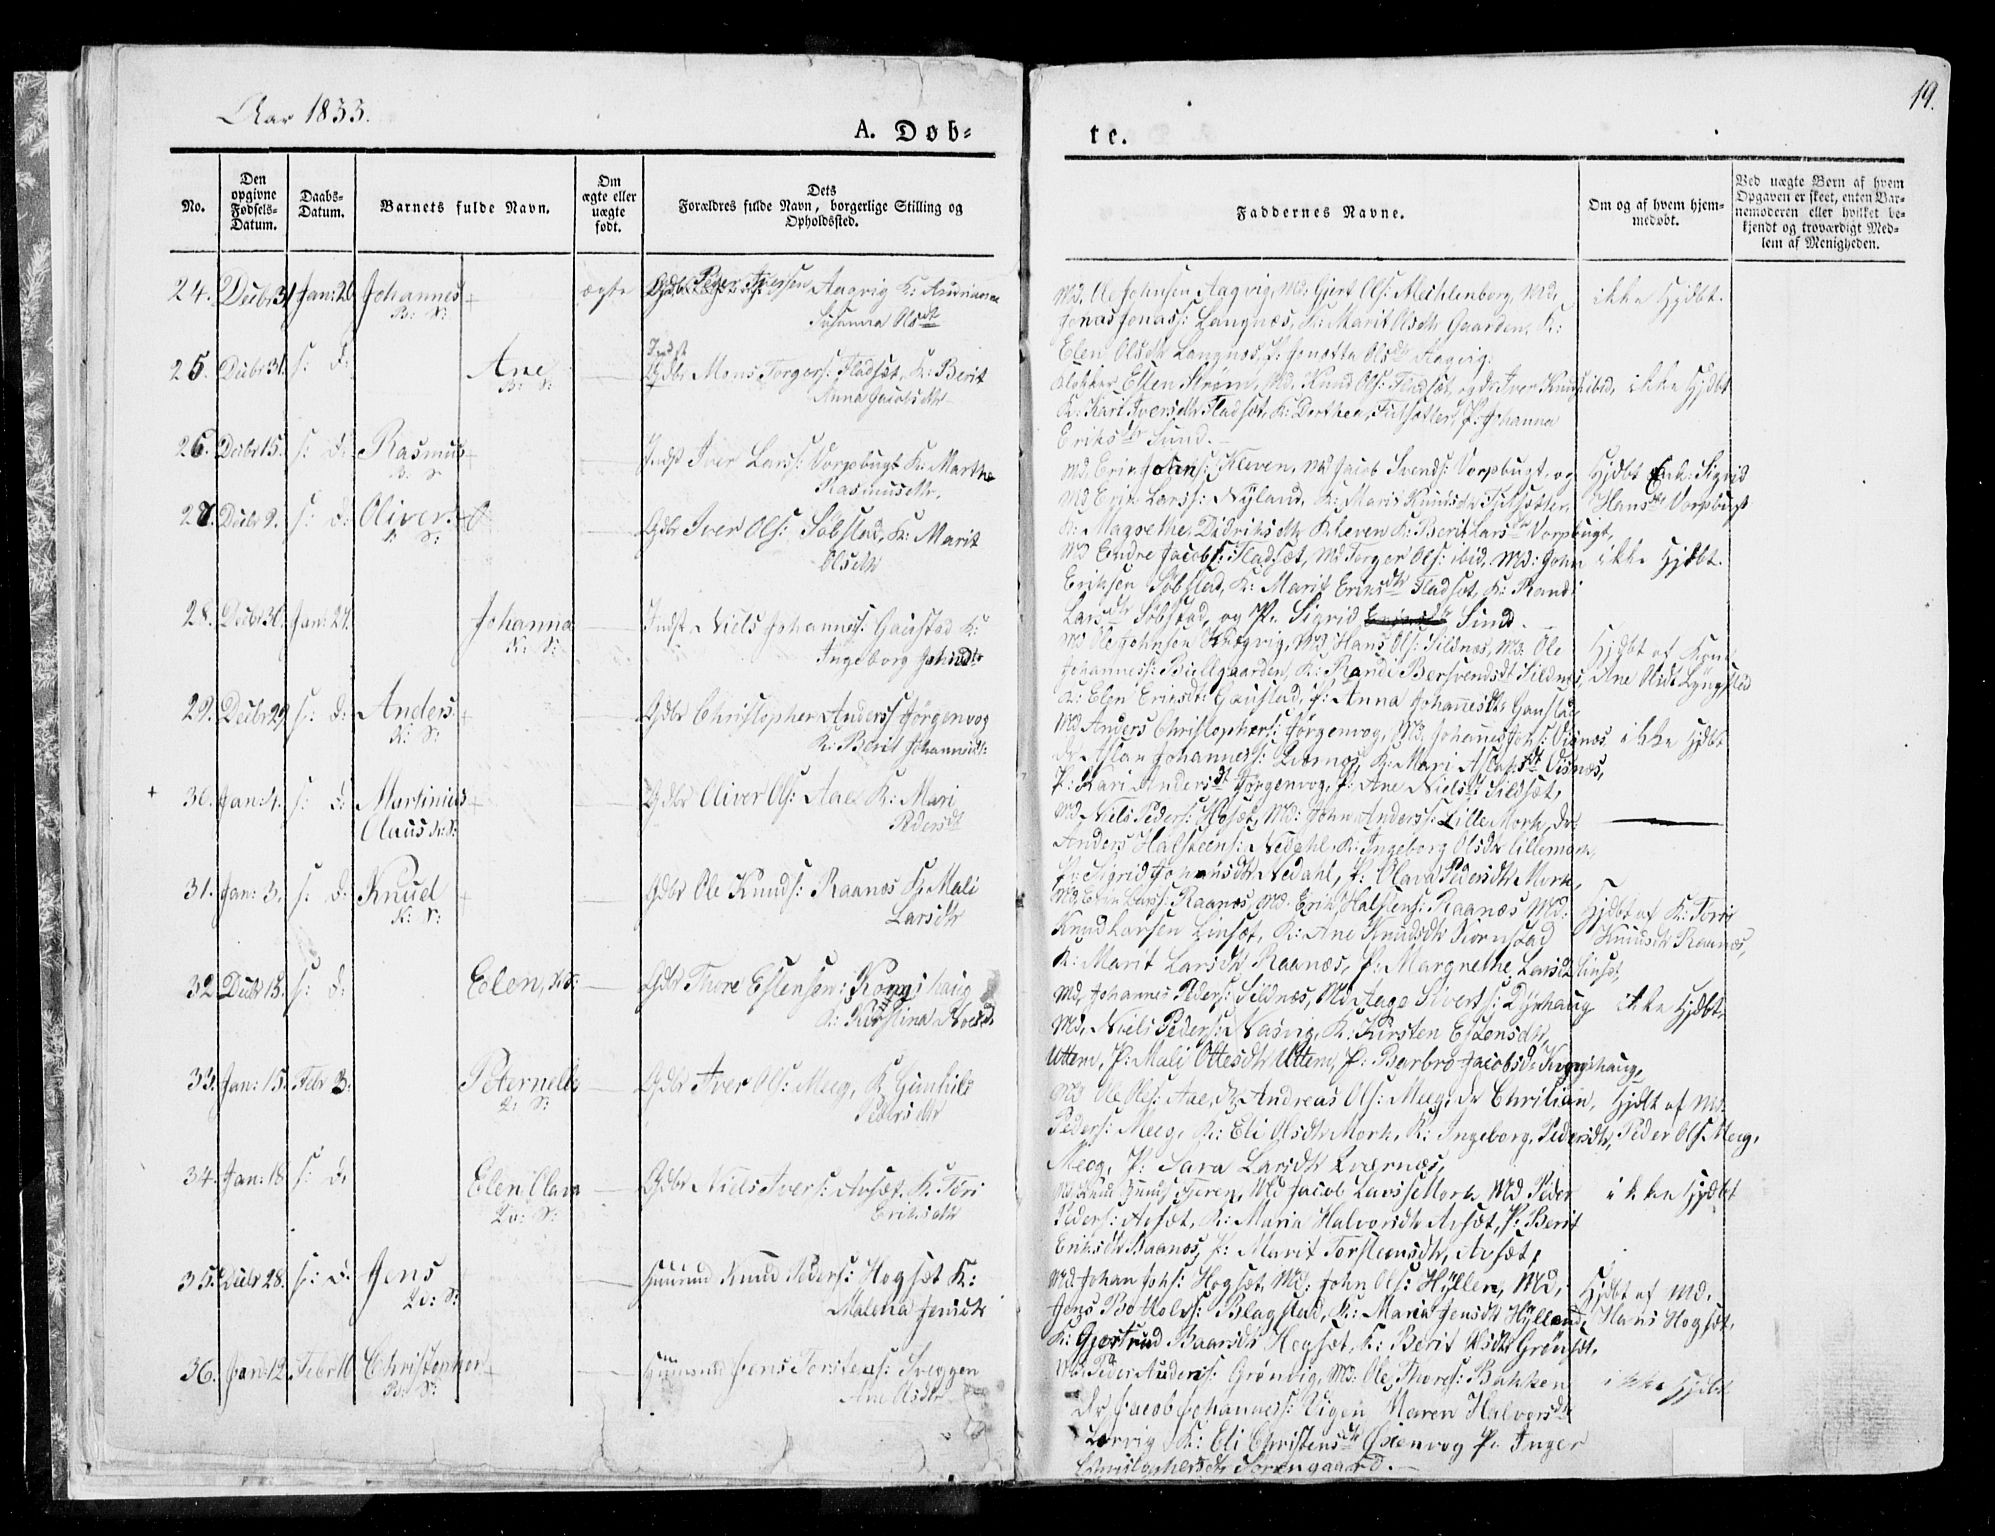 Aar 1833.
19.
A. Døb=
te.
No.
Den
opgivne
Fødsels-
Datum.
Daabs-
Datum.
Barnets fulde Navn.
Om
ægte eller
uægte
født.
Dets
Forældres fulde Navn, borgerlige Stilling og
Opholdssted.
Faddernes Navne.
Om og af hvem hjem-
medøbt.
Ved uægte Børn af hvem
Opgaven er skeet, enten Bar-
nemoderen eller hvilket be-
kjendt og troværdigt Med-
lem af Menigheden.
24. Decbr 31 Jan: 20 Johannes ægte Gdbr Peder Iversen Aagvig K:
Susanna Olsdt
Md. Ole Johnsen Aagvig, Md: Gjert Ols: Mechlenborg, Md.
Jonas Jonass: Langnæs, K: Marit Olsdtr Gaarden, K:
Elen Olsdtr Langnæs, P: Olsdtr Aagvig.
ikke Hjdbt.
25. Decbr 31. s: d: Ane
Indst
Gdbr Mons Torgers: Fladsæt, K: Berit
Anna Jacobsdtr
Klokker Esten Strøm, Md. Knud Ols: Fladsæt, og Iver ibid,
K: Kari Iversdtr Fladsæt, K: Dorthea P: Johanna
Eriksdtr Sund.
ikke Hjdbt
26. Decbr 15. s: d: Rasmus
Indst Iver Lars: Vorpbugt K: Marthe
Rasmusdtr.
Md. Erik Johns: Kleven, Md Jacob Svends: Vorpbugt, og
Md Erik Larss: Nyland, K: Maris Knudsdtr
K: Magrethe Didriksdtr Kleven K: Berit Larsdtr Vorpbugt,
Hjdbt Enk: Sigrid
Hansdtr Vorpbugt
27. Decbr 9. s: d: Oliver
Gdbr Iver Ols: Søbstad, K: Marit
Olsdtr
Md Endre Jacobs: Fladsæt, Md Torger Ols: ibid, Md: John
Eriksen Søbstad, K: Marit Eriksdtr Fladsæt, K: Randi
Larsdtr Søbstad, og P: Sigrid Sund.
ikke Hjdbt.
28. Decbr 30. Jan: 27. Johanna
Indst Niels Johanness: Gaustad K:
Ingeborg Johnsdtr
Md Ole Johnsen Md Hans Ols: Sildnæs, Md: Ole
Johanness: K: Randi Bersvendsdt Sildnæs,
K: Elen Eriksdtr Gaustad, P: Anna Johannesdtr Gaustad
Hjdbt af Kone
Ane Olsdt Lyngstad
29. Decbr 29 s: d: Anders
Gdbr Christopher Anderss Jørgenvog
K: Berit Johannsdt:
Md Anders Christophers: Jørgenvog, Md: Johannes Johs: Visnæs
Aslan Johanness: Qværnæs, K: Mari Visnæs,
P: Kari Andersdt Jørgenvog, P: Ane Nielsdt Sildsæt,
ikke Hjdbt
+ 30. Jan: 4. s: d: Martinius
Claus
Gdbr Oliver Ols: Aae K: Mari
Pedersdt
Md Niels Peders: Hosæt, Md: John Anderss: Lille Mork,
Anders Halsteens: Nedahl, K: Ingeborg Olsdtr Lillemork,
P: Sigrid Johansdtr Nedahl, P: Olava Pedersdtr Mork,
31. Jan: 3. s: d: Knud
Gdbr Ole Knuds: Raanæs K: Mali
Larsdtr
Md. Erik Larss: Raanæs, Md. Erik Halstens: Raanæs Md:
Knud Larsen Linsæt, K: Ane Knudsdtr Biørnstad
K: Marit Larsdtr Raanæs, P: Margrethe Larsdt Linset,
Hjdbt af K: Tøri
Knudsdtr Raanæs,
32. Decbr 18. s: d: Elen,
Gdbr Thore Estensen: Kongshaug
K: Kirstina
Md, Johannes Peders: Sildnæs, Md Aage Siverts: Dyrhaug
Md. Niels Peders: Nasvig, K: Kirsten Estensdtr
Uttem, P: Mali Ottesdtr Uttem, P: Barbro Jacobsd: Kongshaug,
ikke Hjdbt,
33. Jan: 15. Febr 3. Peternelle
Gdbr Iver Ols: Meeg, K Gunhild
Pedersdtr
Md Ole Ols: Aae, Andreas Ols: Meeg, Christian,
Peders: Meeg, K: Eli Olsdtr Mork, K: Ingeborg Pedersdtr,
Meeg, P: Sara Larsdtr Qværnæs,
Hjdbt af Md.
Peder Ols Meeg,
34. Jan: 18. s: d: Elen Olava
Gdbr Niels Ivers: Avsæt, K: Tøri
Eriksdtr
Md Knud Knuds Fjeren, Md Jacob Larss: Mork Md Peder
Peders: Avsæt, K: Maria Halvorsdtr Avsæt, P: Berit
Eriksdtr Raanæs, P: Marit Torsteensdtr, Avsæt,
ikke Hjdbt
35. Decbr 28. s: d. Jens
Huusmd Knud Peders: Hogsæt K:
Malena Jensdtr
Md Johan Johs: Hogsæt, Md: John Ols: Hyllen, Md:
Jens Botholvs: Blagstad, K: Maria Jensdtr Hylland,
K: Gjertrud Baarsdtr Hogsæt, K: Berit Olsdtr Grønset.
Hjdbt af Md.
Hans Hogsæt,
36. Jan: 12. Febr 10 Christopher
Huusmd Jens Torstens: Sveggen
Ane Olsdtr
Md Peder Anders: Grønvig, Md: Ole Thores: Bakken
Jacob Johanness: Vigen Maren Halvorsdtr
Lervig K: Eli Christensdtr Øxenvog P: Inger
Christophersdtr Sorengaard.
ikke Hjdbt